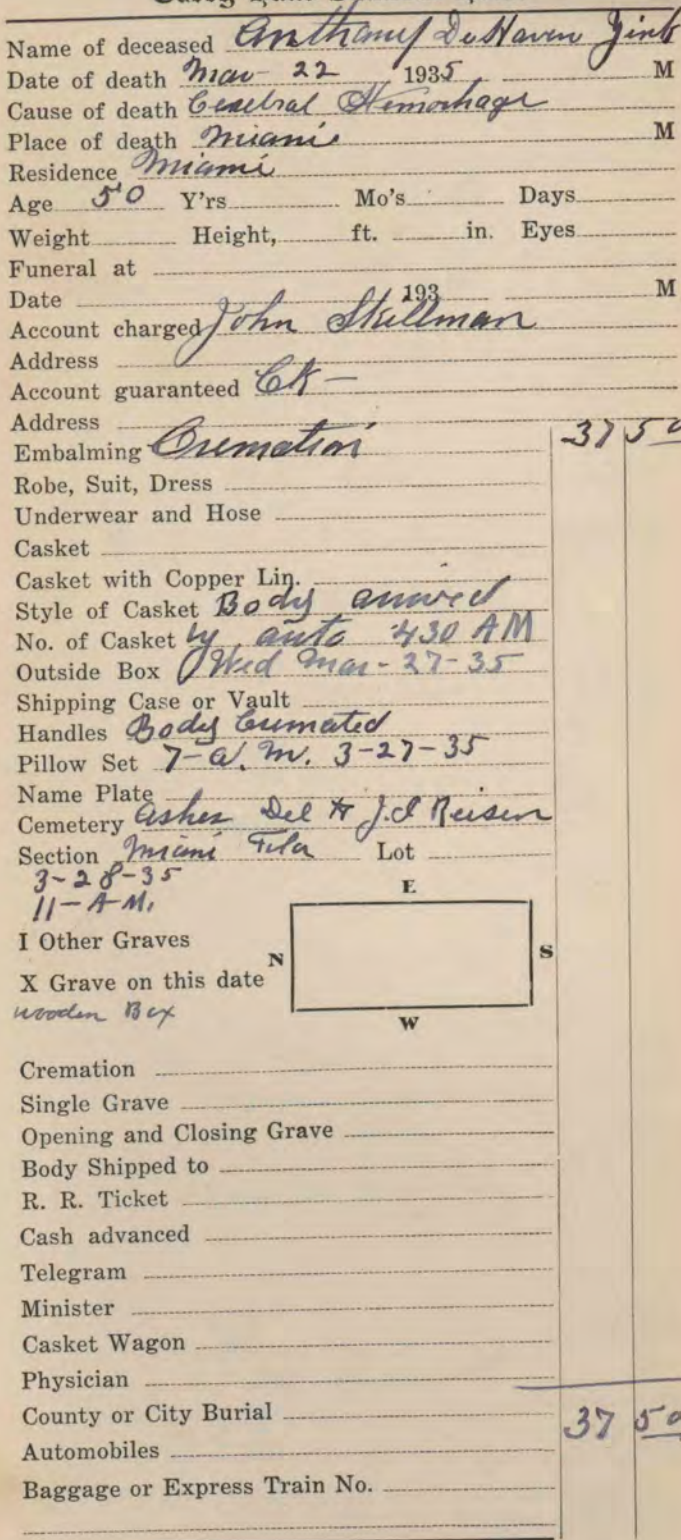 Name of deceased Anthony DeHaven Zink
Date of death Mar 22 1935 M
Cause of death Cerebral Hemorhage
Place of death Miami M
Residence Miami
Age 50 Y'rs Mo's Days
Weight Height, ft. in. Eyes
Funeral at
Date 193 M
Account charged John Skillman
Address
Account guaranteed CK —
Address
Embalming Cremation 37 50
Robe, Suit, Dress
Underwear and Hose
Casket
Casket with Copper Lin.
Style of Casket Body arrived
No. of Casket by auto 430 AM
Outside Box Wed Mar - 27-35
Shipping Case or Vault
Handles Body Cremated
Pillow Set 7- a. m. 3-27-35
Name Plate
Cemetery ashes Del to
Section Miami Fla Lot
3-28-35
11-A-M.
E
I Other Graves
N S
X Grave on this date
wooden Box
W
Cremation
Single Grave
Opening and Closing Grave
Body Shipped to
R. R. Ticket
Cash advanced
Telegram
Minister
Casket Wagon
Physician
County or City Burial 37 50
Automobiles
Baggage or Express Train No.